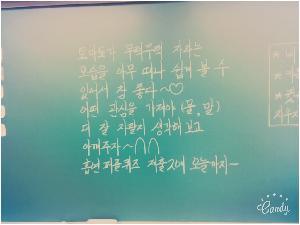 토마토가 무럭무럭 자라는
모습을 아무 때나 쉽게 볼 수
있어서 참 좋다~♡
어떤 관심을 가져야 (물, 말)
더 잘 자랄지 생각해 보고
아껴주자~
흡연 퍼즐퀴즈 제출 오늘까지~
Candy